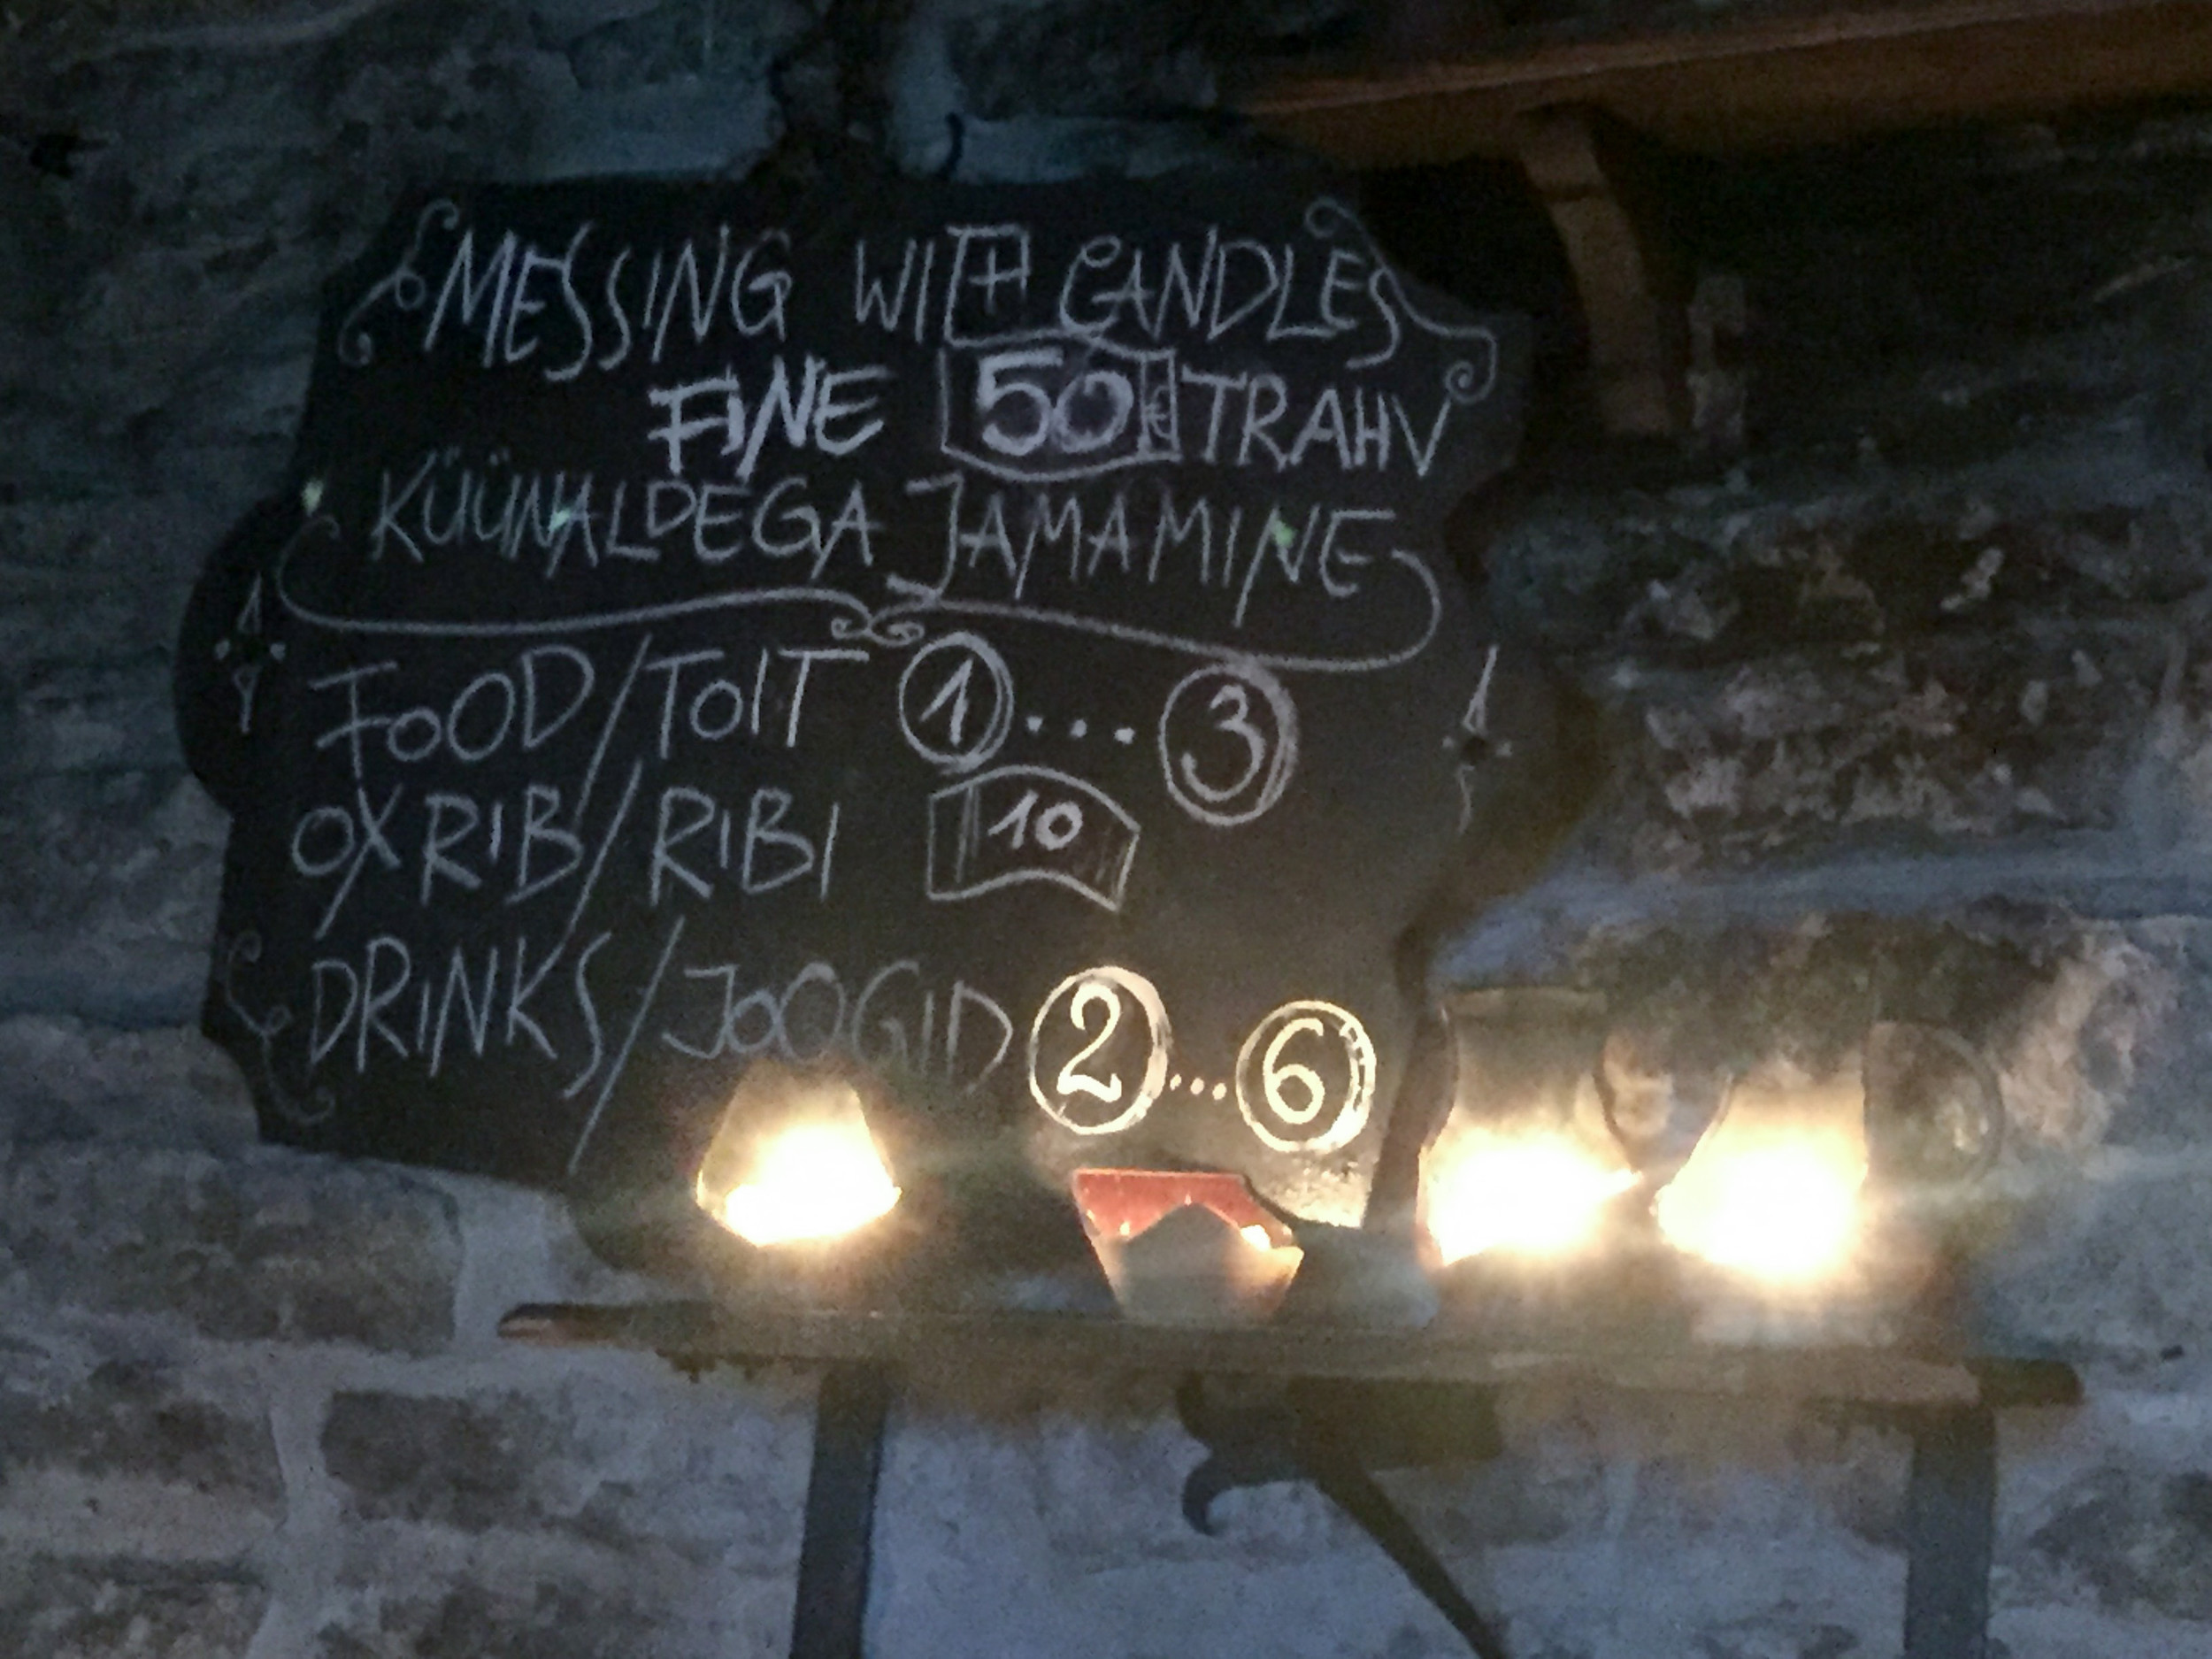 MESSING WITH CANDLES
FINE 50€ TRAHV
KÜÜNALDEGA JAMAMINE
FOOD/TOIT 1...3
OX RIB/RIBI 10
DRINKS/JOOGID 2...6